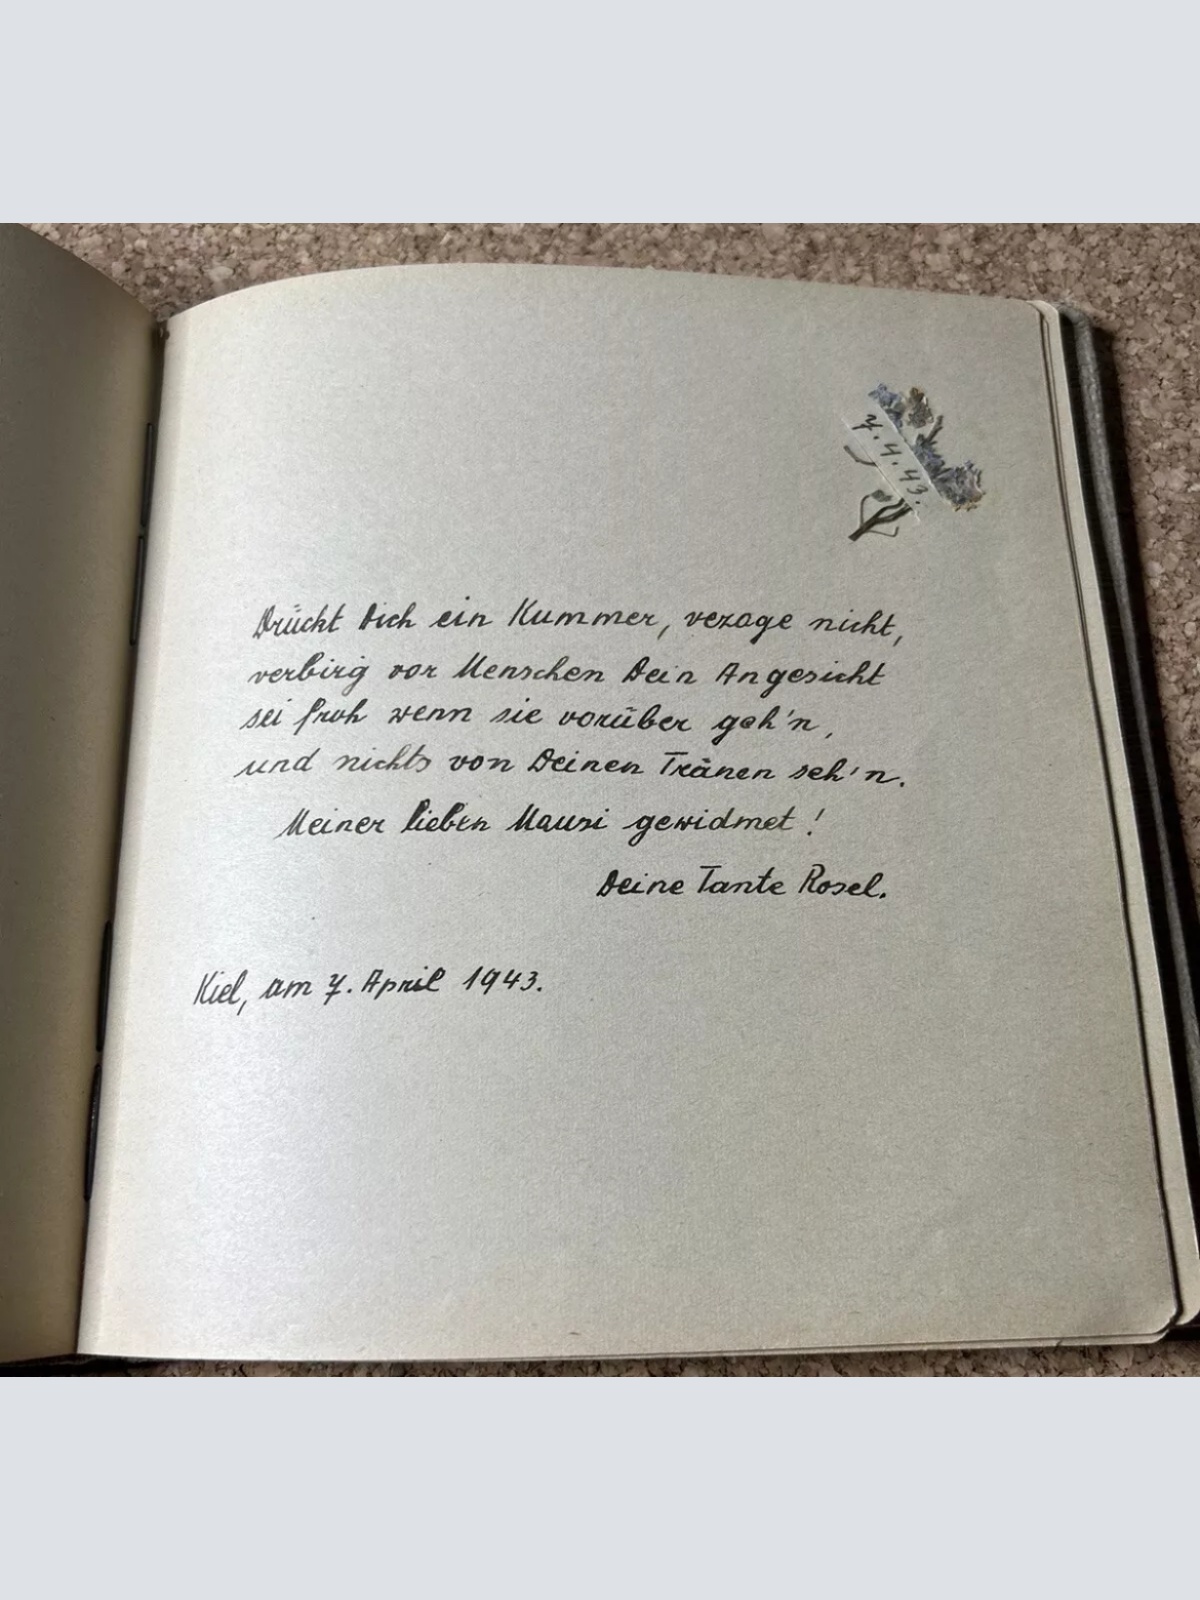 7.4.43.
Drückt Dich ein Kummer, vezage nicht,
verbirg vor Menschen Dein Angesicht
sei froh wenn sie vorüber geh'n,
und nichts von Deinen Tränen seh'n.
Meiner lieben Mausi gewidmet!
Deine Tante Rosel.
Kiel, am 7. April 1943.